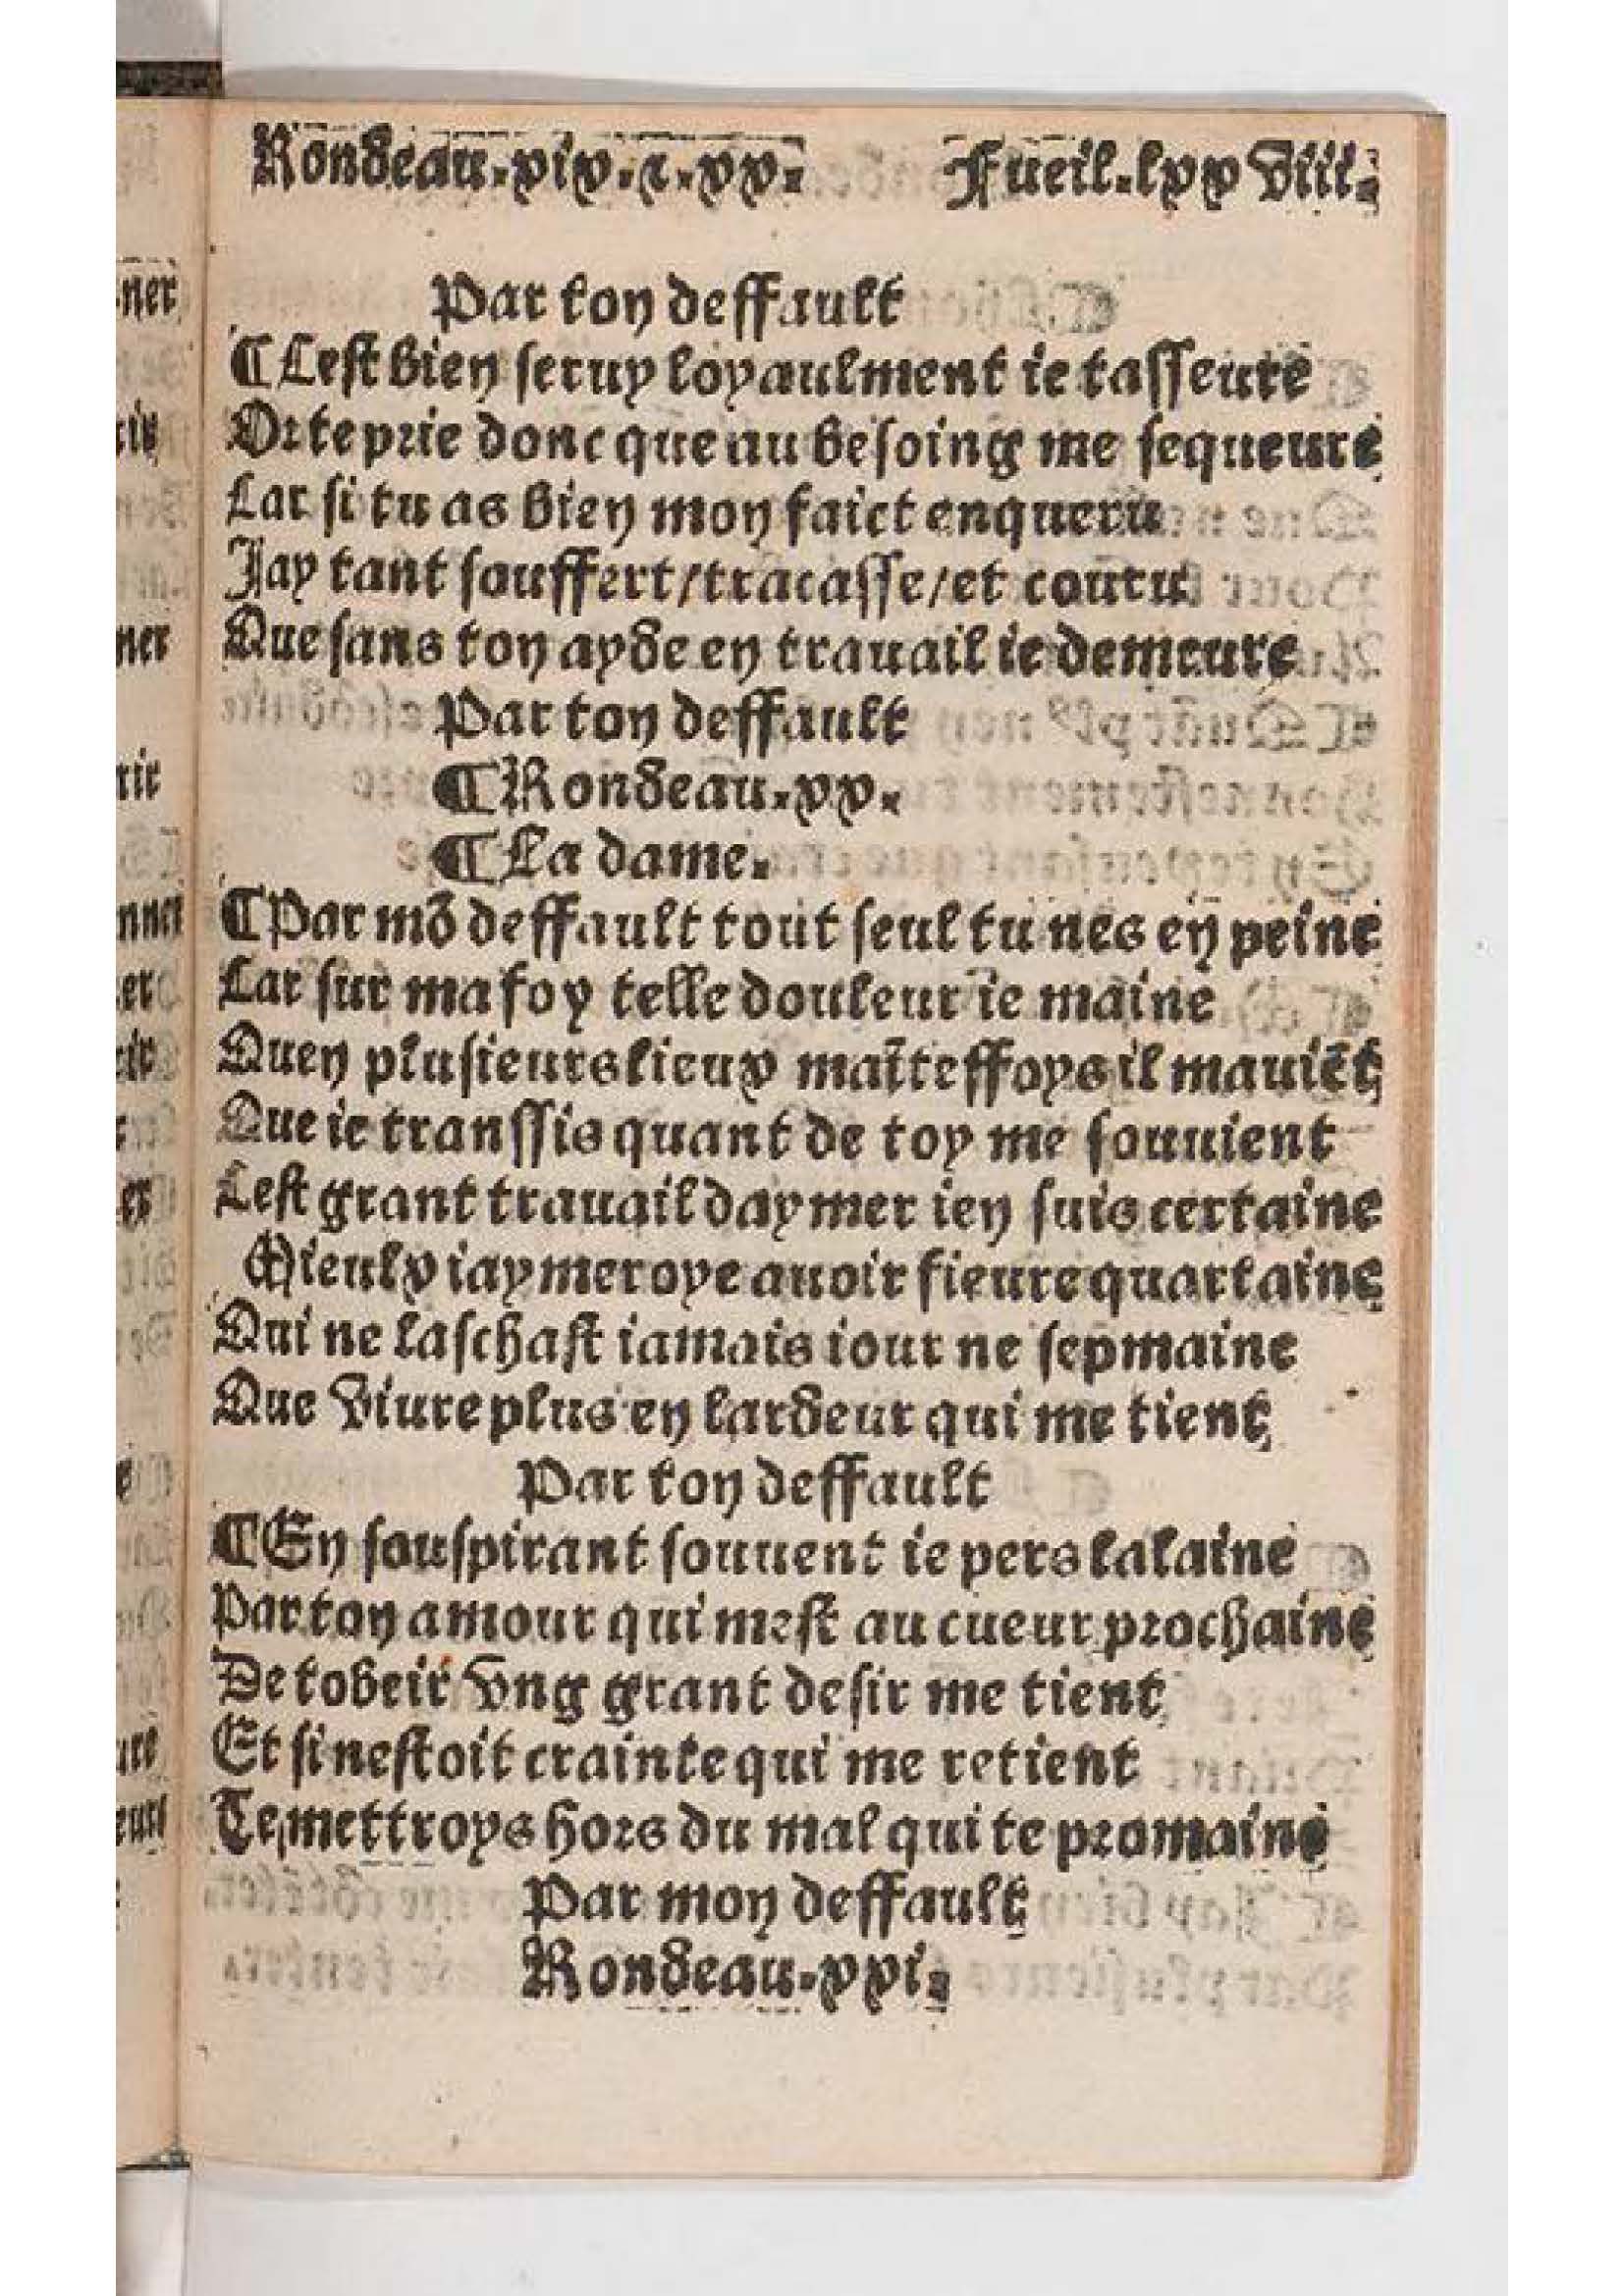 Rondeau.xix.⁊.xx. Fueil.lxxviii.
Par ton deffault
¶ Cest bien seruy loyaulment ie tasseure
Or te prie donc que au besoing me sequeure
Car si tu as bien mon faict enqueru
Jay tant souffert/tracasse/et couru
Que sans ton ayde en trauail ie demeure
Par ton deffault
¶ Rondeau.xx.
¶ La dame.
¶ Par mõ deffault tout seul tu nes en peine
Car sur ma foy telle douleur ie maine
Quen plusieurs lieux maĩteffoys il mauiẽt
Que ie transsis quant de toy me souuient
Cest grant trauail daymer ien suis certaine
Mieulx iaymeroye auoir fieure quartaine
Qui ne laschast iamais iour ne sepmaine
Que viure plus en lardeur qui me tient
Par ton deffault
¶ En souspirant souuent ie pers lalaine
Par ton amour qui mest au cueur prochaine
De tobeir vng grant desir me tient
Et si nestoit crainte qui me retient
Te mettroys hors du mal qui te promaine
Par mon deffault
Rondeau.xxi.